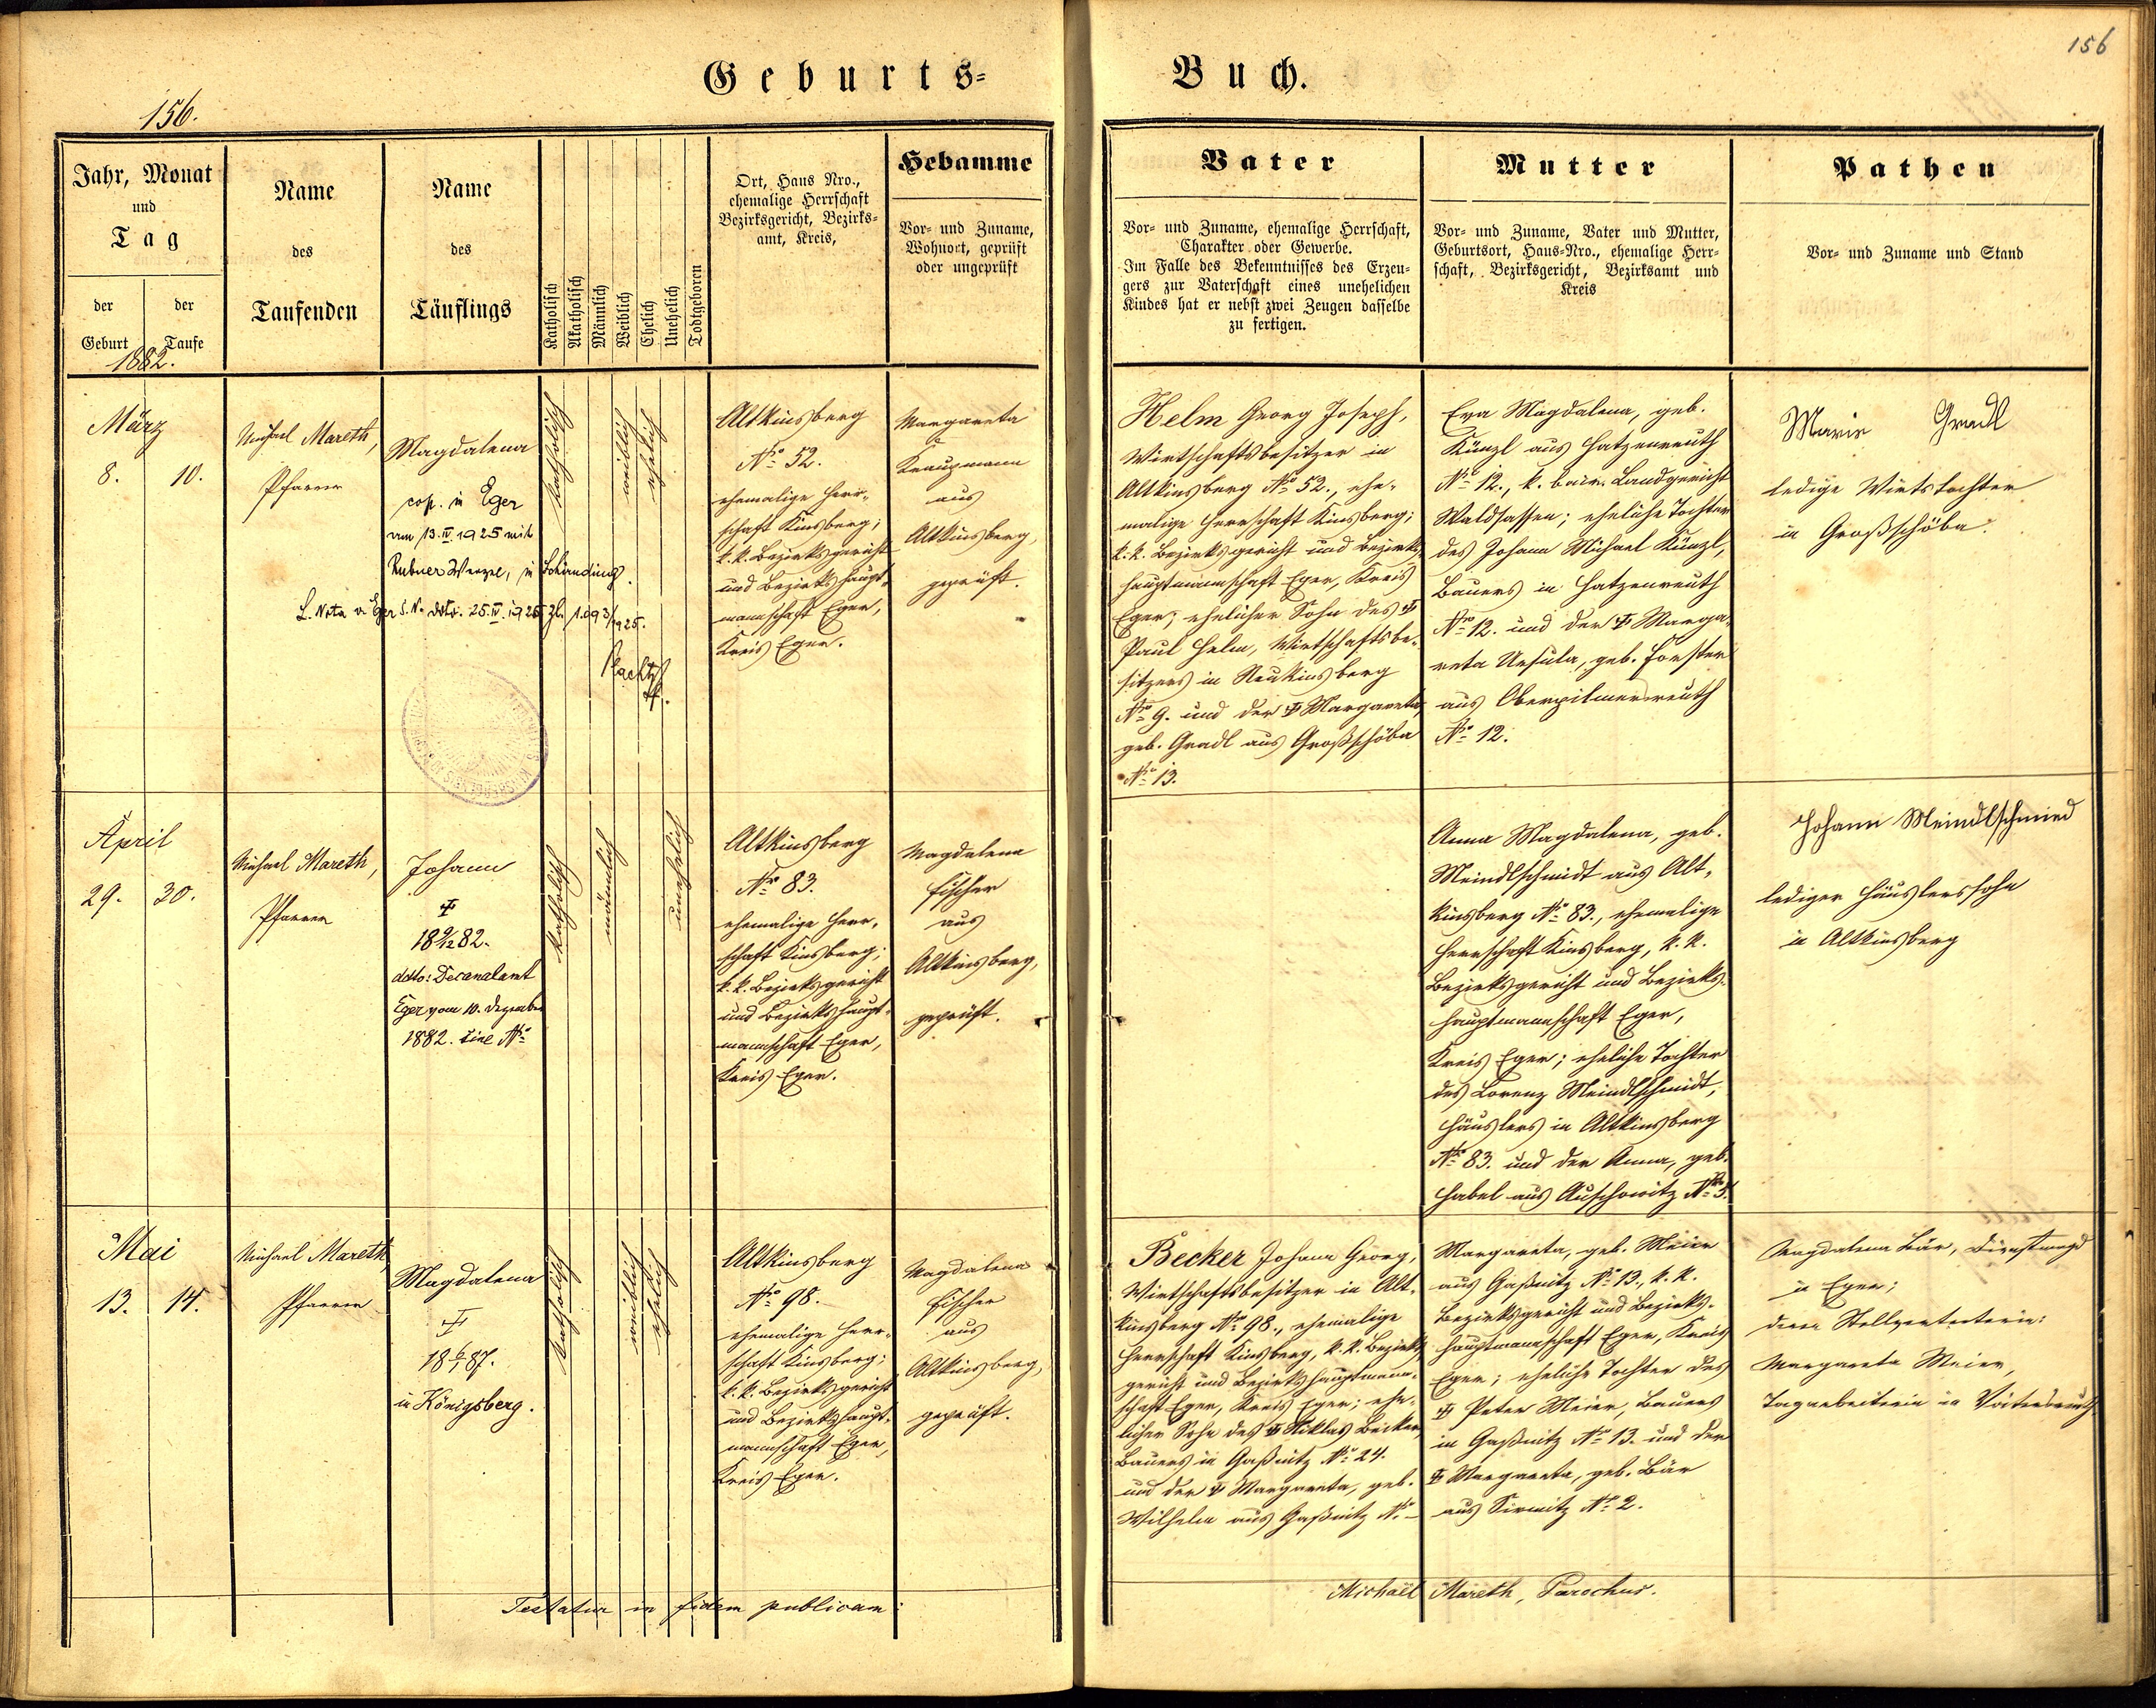 156
Geburts-Buch.
156.
Jahr, Monat
und
Tag
der Geburt
der Taufe
1882.
Name
des
Taufenden
Name
des
Täuflings
Katholisch
Akatholisch
Männlich
Weiblich
Ehelich
Unehelich
Todtgeboren
Ort, Haus Nro.,
ehemalige Herrschaft
Bezirksgericht, Bezirks-
amt, Kreis,
Hebamme
Vor- und Zuname,
Wohnort, geprüft
oder ungeprüft
Vater
Vor- und Zuname, ehemalige Herrschaft,
Charakter oder Gewerbe.
Im Falle des Bekenntnisses des Erzeu-
gers zur Vaterschaft eines unehelichen
Kindes hat er nebst zwei Zeugen dasselbe
zu fertigen.
Mutter
Vor- und Zuname, Vater und Mutter,
Geburtsort, Haus-Nro., ehemalige Herr-
schaft, Bezirksgericht, Bezirksamt und
Kreis
Pathen
Vor- und Zuname und Stand
März
8. 10.
Michael Mareth,
Pfarrer
Magdalena
cop. in Eger
am 13.IV.1925 mit
Rubner Wenzel, in
L. Nota v. Eger S.N. ddto. 25.IV.1925 Zl. 1.093/1925.
katholisch
weiblich
ehelich
Altkinsberg
No 52.
ehemalige Herr-
schaft Kinsberg;
k.k. Bezirksgericht
und Bezirkshaupt-
mannschaft Eger,
Kreis Eger.
Margareta
Kraupmann
aus
Altkinsberg,
geprüft.
Helm Georg Joseph,
Wirtschaftsbesitzer in
Altkinsberg No 52., ehe-
malige Herrschaft Kinsberg;
k.k. Bezirksgericht und Bezirks-
hauptmannschaft Eger, Kreis
Eger; ehelicher Sohn des †
Paul Helm, Wirtschaftsbe-
sitzers in Neukinsberg
No 9. und der † Margareta,
geb. Gradl aus Großschöba
No 13.
Eva Magdalena, geb.
Künzl aus Hatzenreuth
No 12., k. bair. Landgericht
Waldsassen; eheliche Tochter
des Johann Michael Künzl,
Bauers in Hatzenreuth
No 12. und der † Marga-
reta Ursula, geb. Forster
aus Oberpilmersreuth
No 12.
Marie Gradl
ledige Wirtstochter
in Großschöba.
April
29. 30.
Michael Mareth,
Pfarrer
Johann
†
18 9/12 82.
ddto: Decanalamt
Eger vom 10. Dezember
1882. sine No
katholisch
männlich
unehelich
Altkinsberg
No 83.
ehemalige Herr-
schaft Kinsberg;
k.k. Bezirksgericht
und Bezirkshaupt-
mannschaft Eger,
Kreis Eger.
Magdalena
Fischer
aus
Altkinsberg,
geprüft.
Anna Magdalena, geb.
Meindlschmidt aus Alt-
kinsberg No 83., ehemalige
Herrschaft Kinsberg, k.k.
Bezirksgericht und Bezirks-
hauptmannschaft Eger,
Kreis Eger; eheliche Tochter
des Lorenz Meindlschmidt,
Häuslers in Altkinsberg
No 83. und der Anna, geb.
Habel aus Auschowitz No 3.
Johann Meindlschmied
lediger Häuslerssohn
in Altkinsberg
Mai
13. 14.
Michael Mareth
Pfarrer
Magdalena
†
18 6/1 87.
in Königsberg.
katholisch
weiblich
ehelich
Altkinsberg
No 98.
ehemalige Herr-
schaft Kinsberg;
k.k. Bezirksgericht
und Bezirkshaupt-
mannschaft Eger,
Kreis Eger.
Magdalena
Fischer
aus
Altkinsberg,
geprüft.
Becker Johann Georg,
Wirtschaftsbesitzer in Alt-
kinsberg No 98., ehemalige
Herrschaft Kinsberg, k.k. Bezirks-
gericht und Bezirkshauptmann-
schaft Eger, Kreis Eger; ehe-
licher Sohn des † Niklas Becker,
Bauers in Gaßnitz No 24.
und der † Margareta, geb.
Wilhelm aus Gaßnitz No –
Margareta, geb. Meier
aus Gaßnitz No 13., k.k.
Bezirksgericht und Bezirks-
hauptmannschaft Eger, Kreis
Eger; eheliche Tochter des
† Peter Meier, Bauers
in Gaßnitz No 13. und der
† Margareta, geb. Bär
aus Sirmitz No 2.
Magdalena Bär, Dienstmagd
in Eger;
deren Stellvertreterin:
Margareta Meier,
Tagarbeiterin in Voitersreuth
Testatur in fidem publicam:
Michael Mareth, Parochus.